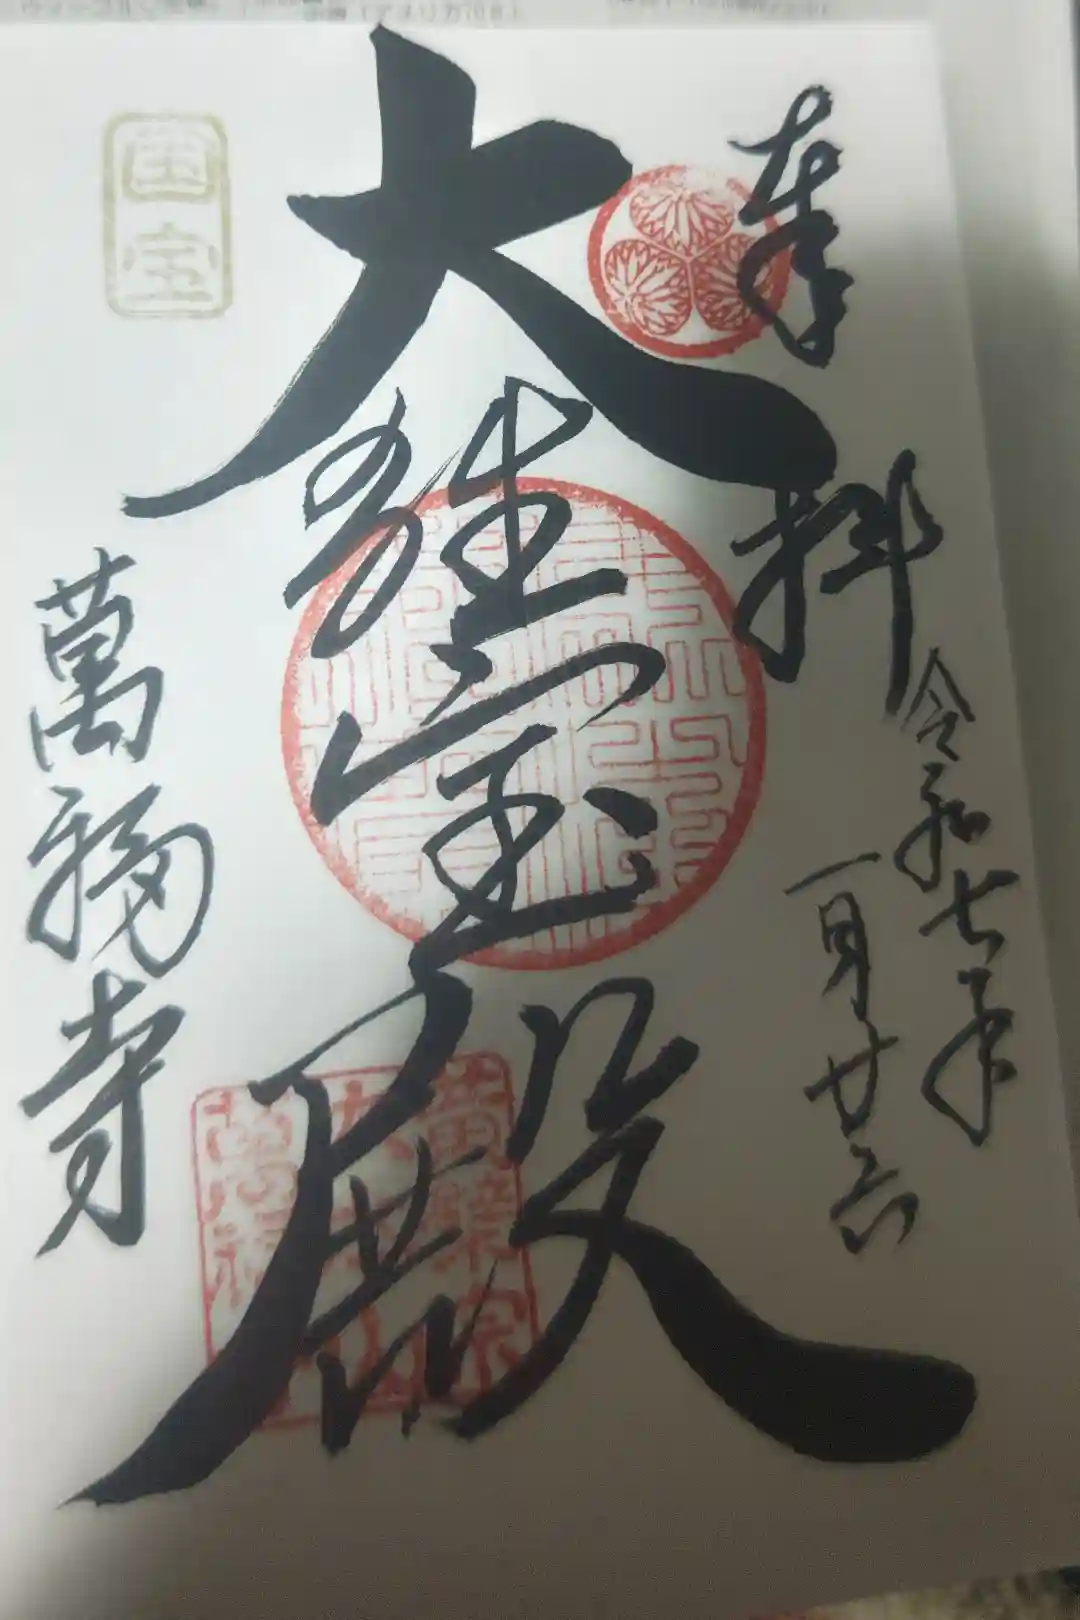 奉拝
令和七年
一月廿六
大雄宝殿
国宝
萬福寺
黄檗宗